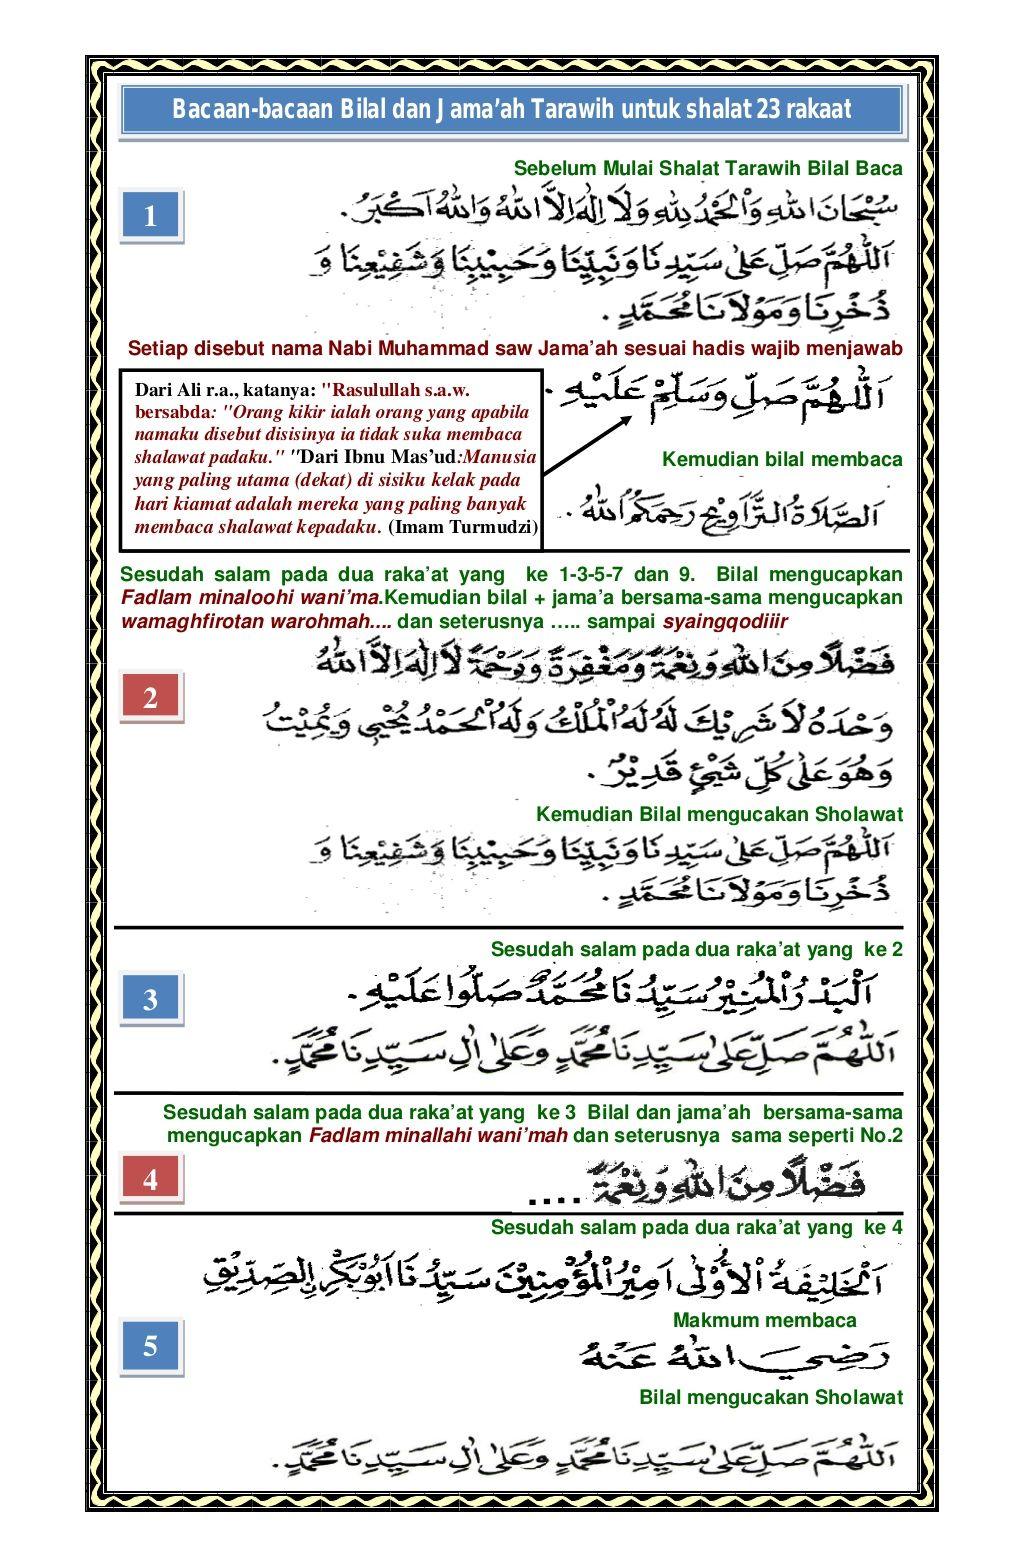 Bacaan-bacaan Bilal dan Jama’ah Tarawih untuk shalat 23 rakaat
Sebelum Mulai Shalat Tarawih Bilal Baca
1
سُبْحَانَ اللهِ وَالْحَمْدُ لِلّٰهِ وَلَا إِلٰهَ اِلَّا اللهُ وَاللهُ اَكْبَرُ .
اَللّٰهُمَّ صَلِّ عَلٰى سَيِّدِنَا وَنَبِيِّنَا وَحَبِيْبِنَا وَشَفِيْعِنَا وَ
ذُخْرِنَا وَمَوْلَانَا مُحَمَّدٍ .
Setiap disebut nama Nabi Muhammad saw Jama’ah sesuai hadis wajib menjawab
اَللّٰهُمَّ صَلِّ وَسَلِّمْ عَلَيْهِ .
Dari Ali r.a., katanya: "Rasulullah s.a.w.
bersabda: "Orang kikir ialah orang yang apabila
namaku disebut disisinya ia tidak suka membaca
shalawat padaku." "Dari Ibnu Mas’ud:Manusia
yang paling utama (dekat) di sisiku kelak pada
hari kiamat adalah mereka yang paling banyak
membaca shalawat kepadaku. (Imam Turmudzi)
Kemudian bilal membaca
اَلصَّلَاةُ التَّرَاوِيْحِ رَحِمَكُمُ اللهُ .
Sesudah salam pada dua raka’at yang ke 1-3-5-7 dan 9. Bilal mengucapkan
Fadlam minaloohi wani’ma.Kemudian bilal + jama’a bersama-sama mengucapkan
wamaghfirotan warohmah.... dan seterusnya ….. sampai syaingqodiiir
2
فَضْلًا مِنَ اللهِ وَنِعْمَةً وَمَغْفِرَةً وَرَحْمَةً لَا اِلٰهَ اِلَّا اللهُ
وَحْدَهُ لَا شَرِيْكَ لَهُ لَهُ الْمُلْكُ وَلَهُ الْحَمْدُ يُحْيِي وَيُمِيْتُ
وَهُوَ عَلٰى كُلِّ شَيْئٍ قَدِيْرٌ .
Kemudian Bilal mengucakan Sholawat
اَللّٰهُمَّ صَلِّ عَلٰى سَيِّدِنَا وَنَبِيِّنَا وَحَبِيْبِنَا وَشَفِيْعِنَا وَ
ذُخْرِنَا وَمَوْلَانَا مُحَمَّدٍ .
Sesudah salam pada dua raka’at yang ke 2
3
اَلْبَدْرُ الْمُنِيْرُ سَيِّدُنَا مُحَمَّدٌ صَلُّوا عَلَيْهِ .
اَللّٰهُمَّ صَلِّ عَلٰى سَيِّدِنَا مُحَمَّدٍ وَعَلٰى اٰلِ سَيِّدِنَا مُحَمَّدٍ .
Sesudah salam pada dua raka’at yang ke 3 Bilal dan jama’ah bersama-sama
mengucapkan Fadlam minallahi wani’mah dan seterusnya sama seperti No.2
4
فَضْلًا مِنَ اللهِ وَنِعْمَةً ....
Sesudah salam pada dua raka’at yang ke 4
اَلْخَلِيْفَةُ الْاُوْلٰى اَمِيْرُ الْمُؤْمِنِيْنَ سَيِّدُنَا اَبُوْ بَكْرٍ اِلصِّدِّيْقِ
Makmum membaca
5
رَضِيَ اللهُ عَنْهُ
Bilal mengucakan Sholawat
اَللّٰهُمَّ صَلِّ عَلٰى سَيِّدِنَا مُحَمَّدٍ وَعَلٰى اٰلِ سَيِّدِنَا مُحَمَّدٍ .